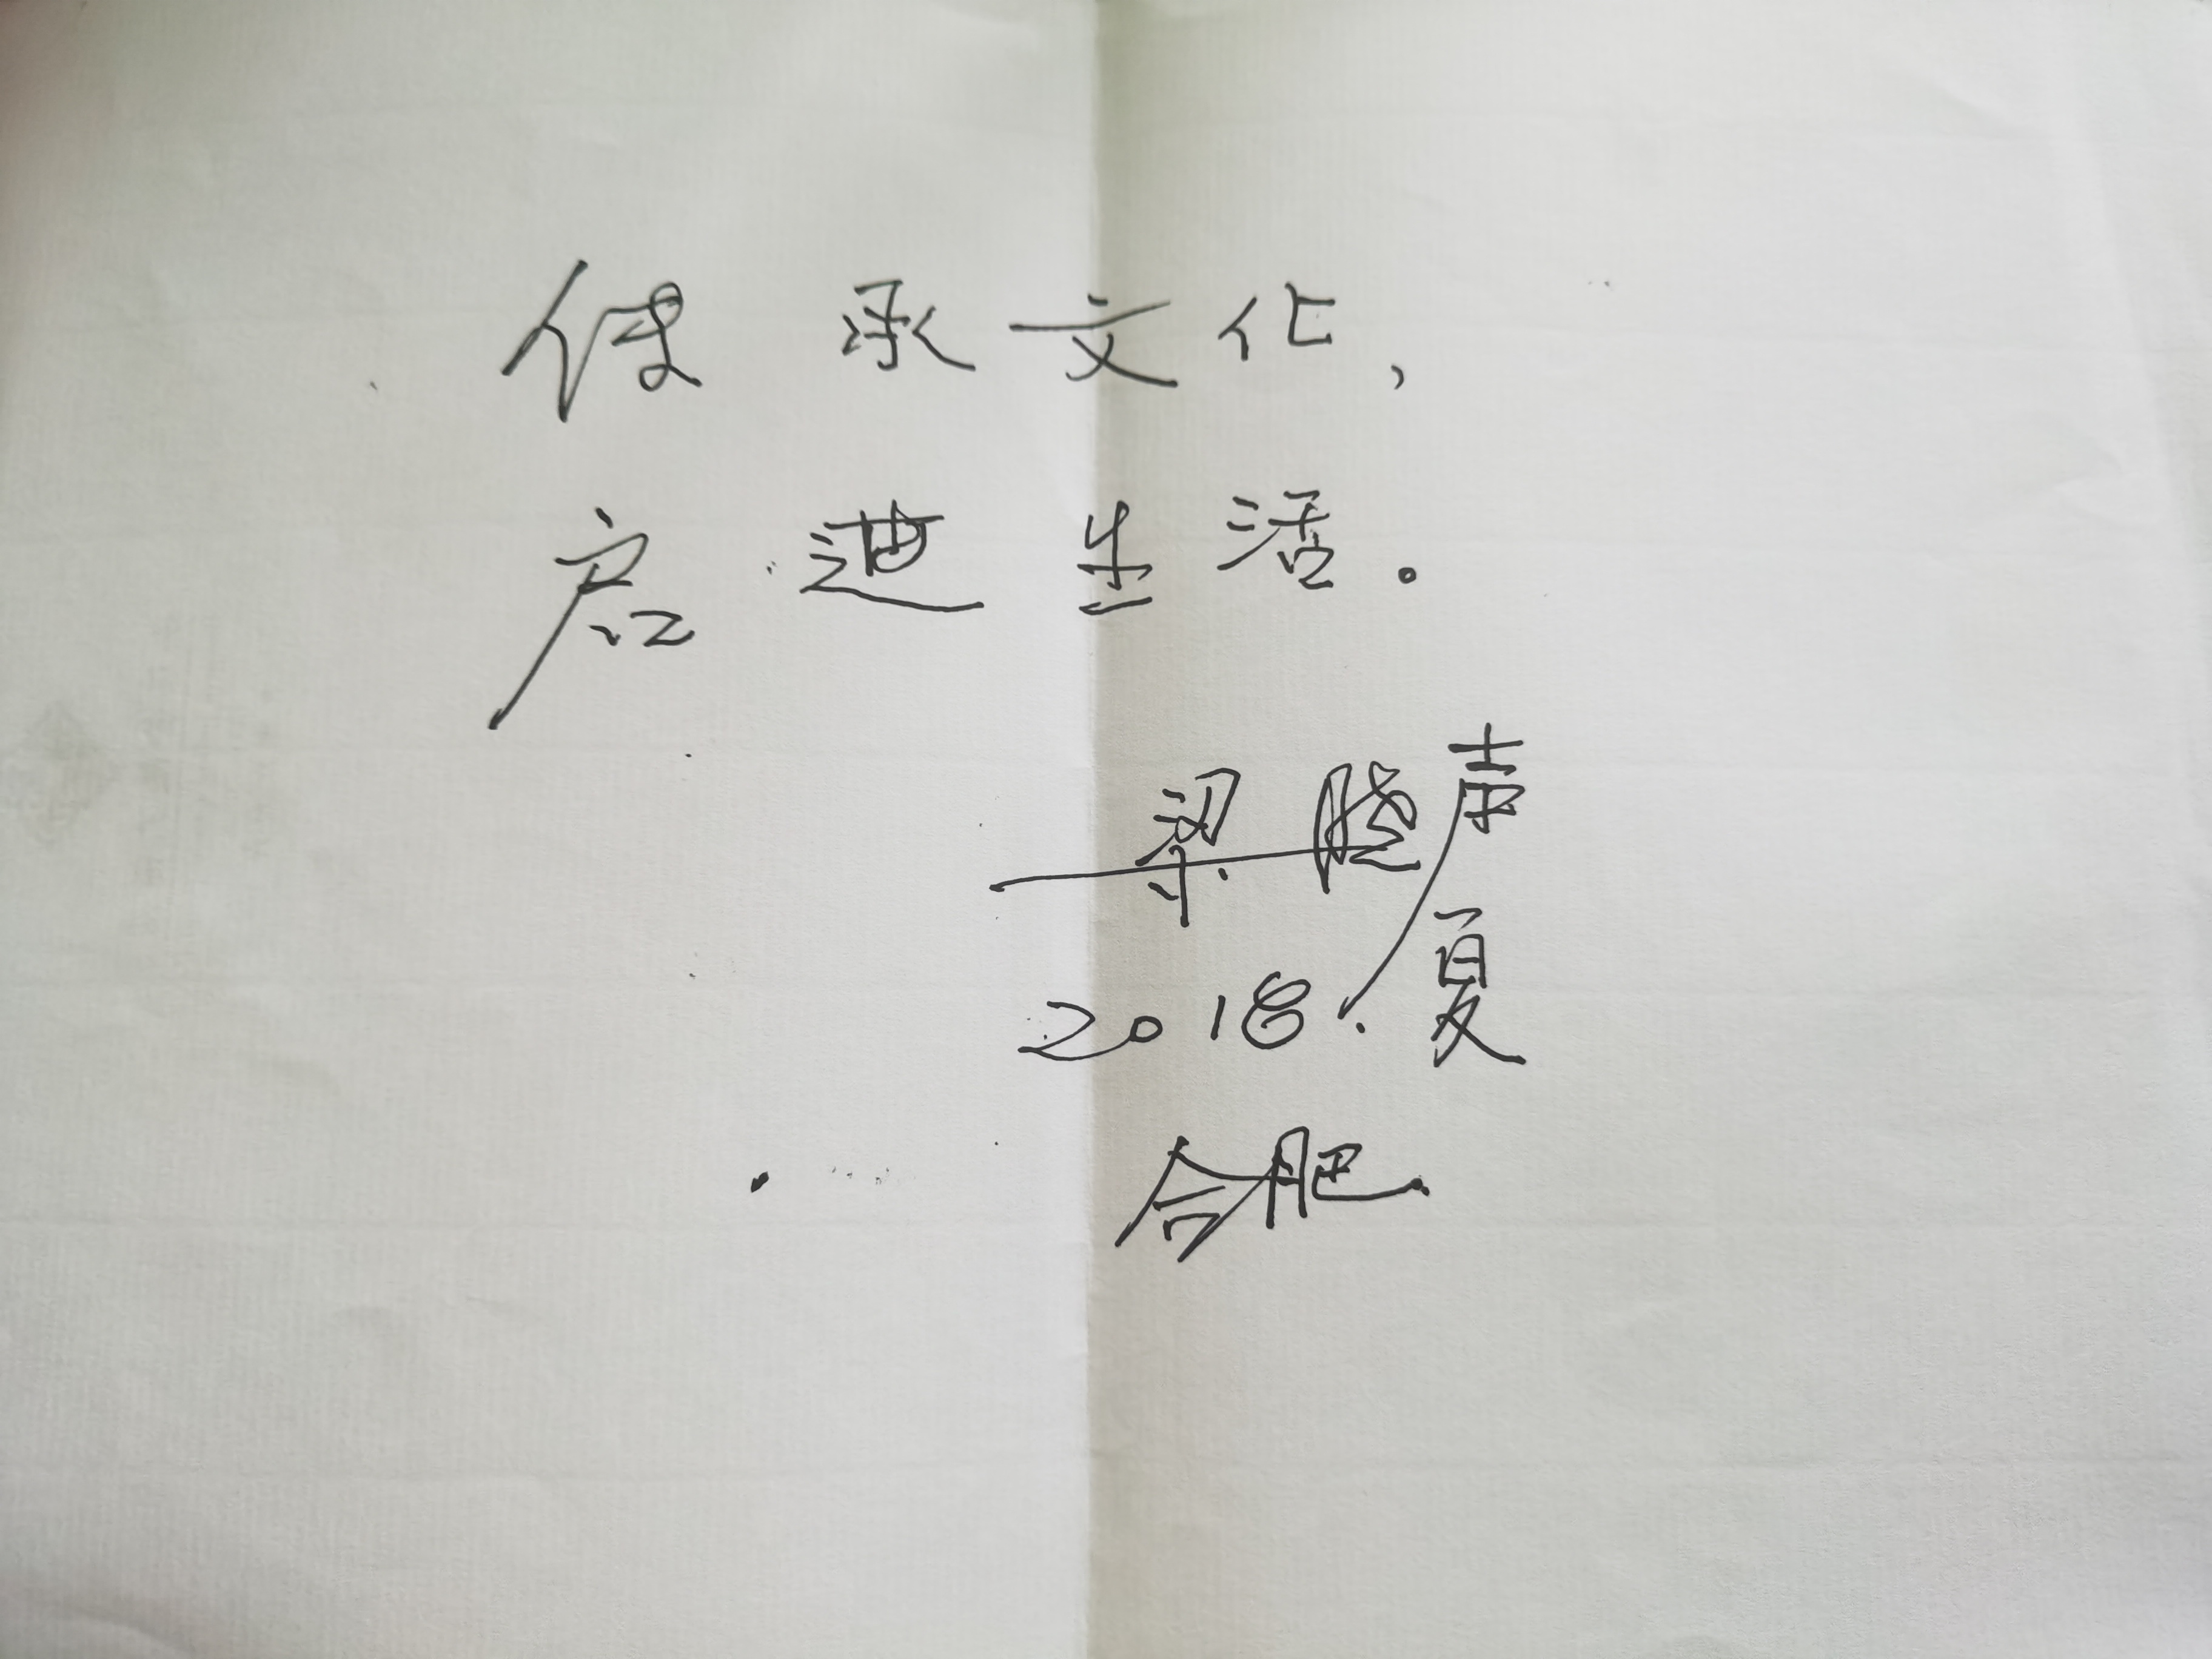 传承文化,
启迪生活。
梁晓声
2018.夏
合肥.